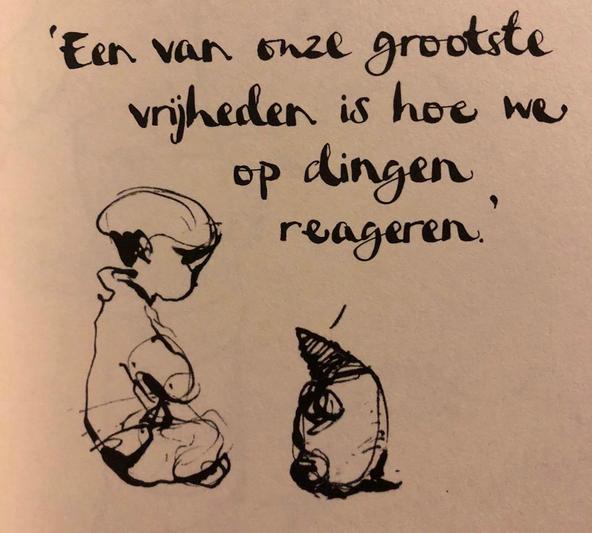 'Een van onze grootste
vrijheden is hoe we
op dingen
reageren.'